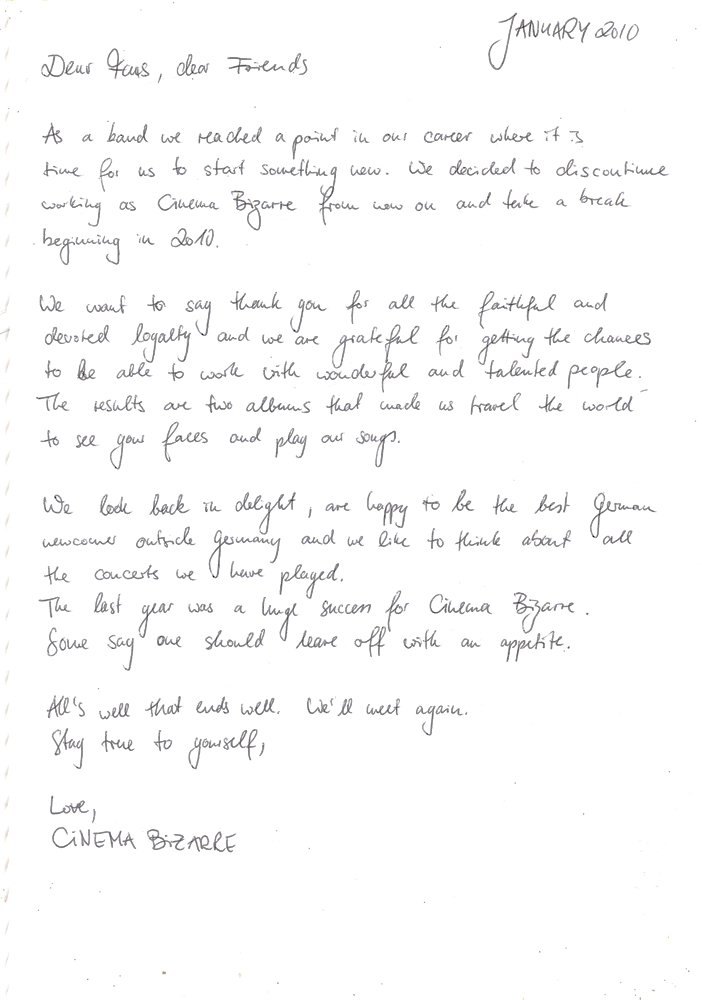 JANUARY 2010
Dear Fans, dear Friends
As a band we reached a point in our career where it is
time for us to start something new. We decided to discontinue
working as Cinema Bizarre from now on and take a break
beginning in 2010.
We want to say thank you for all the faithful and
devoted loyalty and we are grateful for getting the chances
to be able to work with wonderful and talented people.
The results are two albums that made us travel the world
to see your faces and play our songs.
We look back in delight, are happy to be the best German
newcomer outside Germany and we like to think about all
the concerts we have played.
The last year was a huge success for Cinema Bizarre.
Some say one should leave off with an appetite.
All's well that ends well. We'll meet again.
Stay true to yourself,
Love,
CINEMA BIZARRE